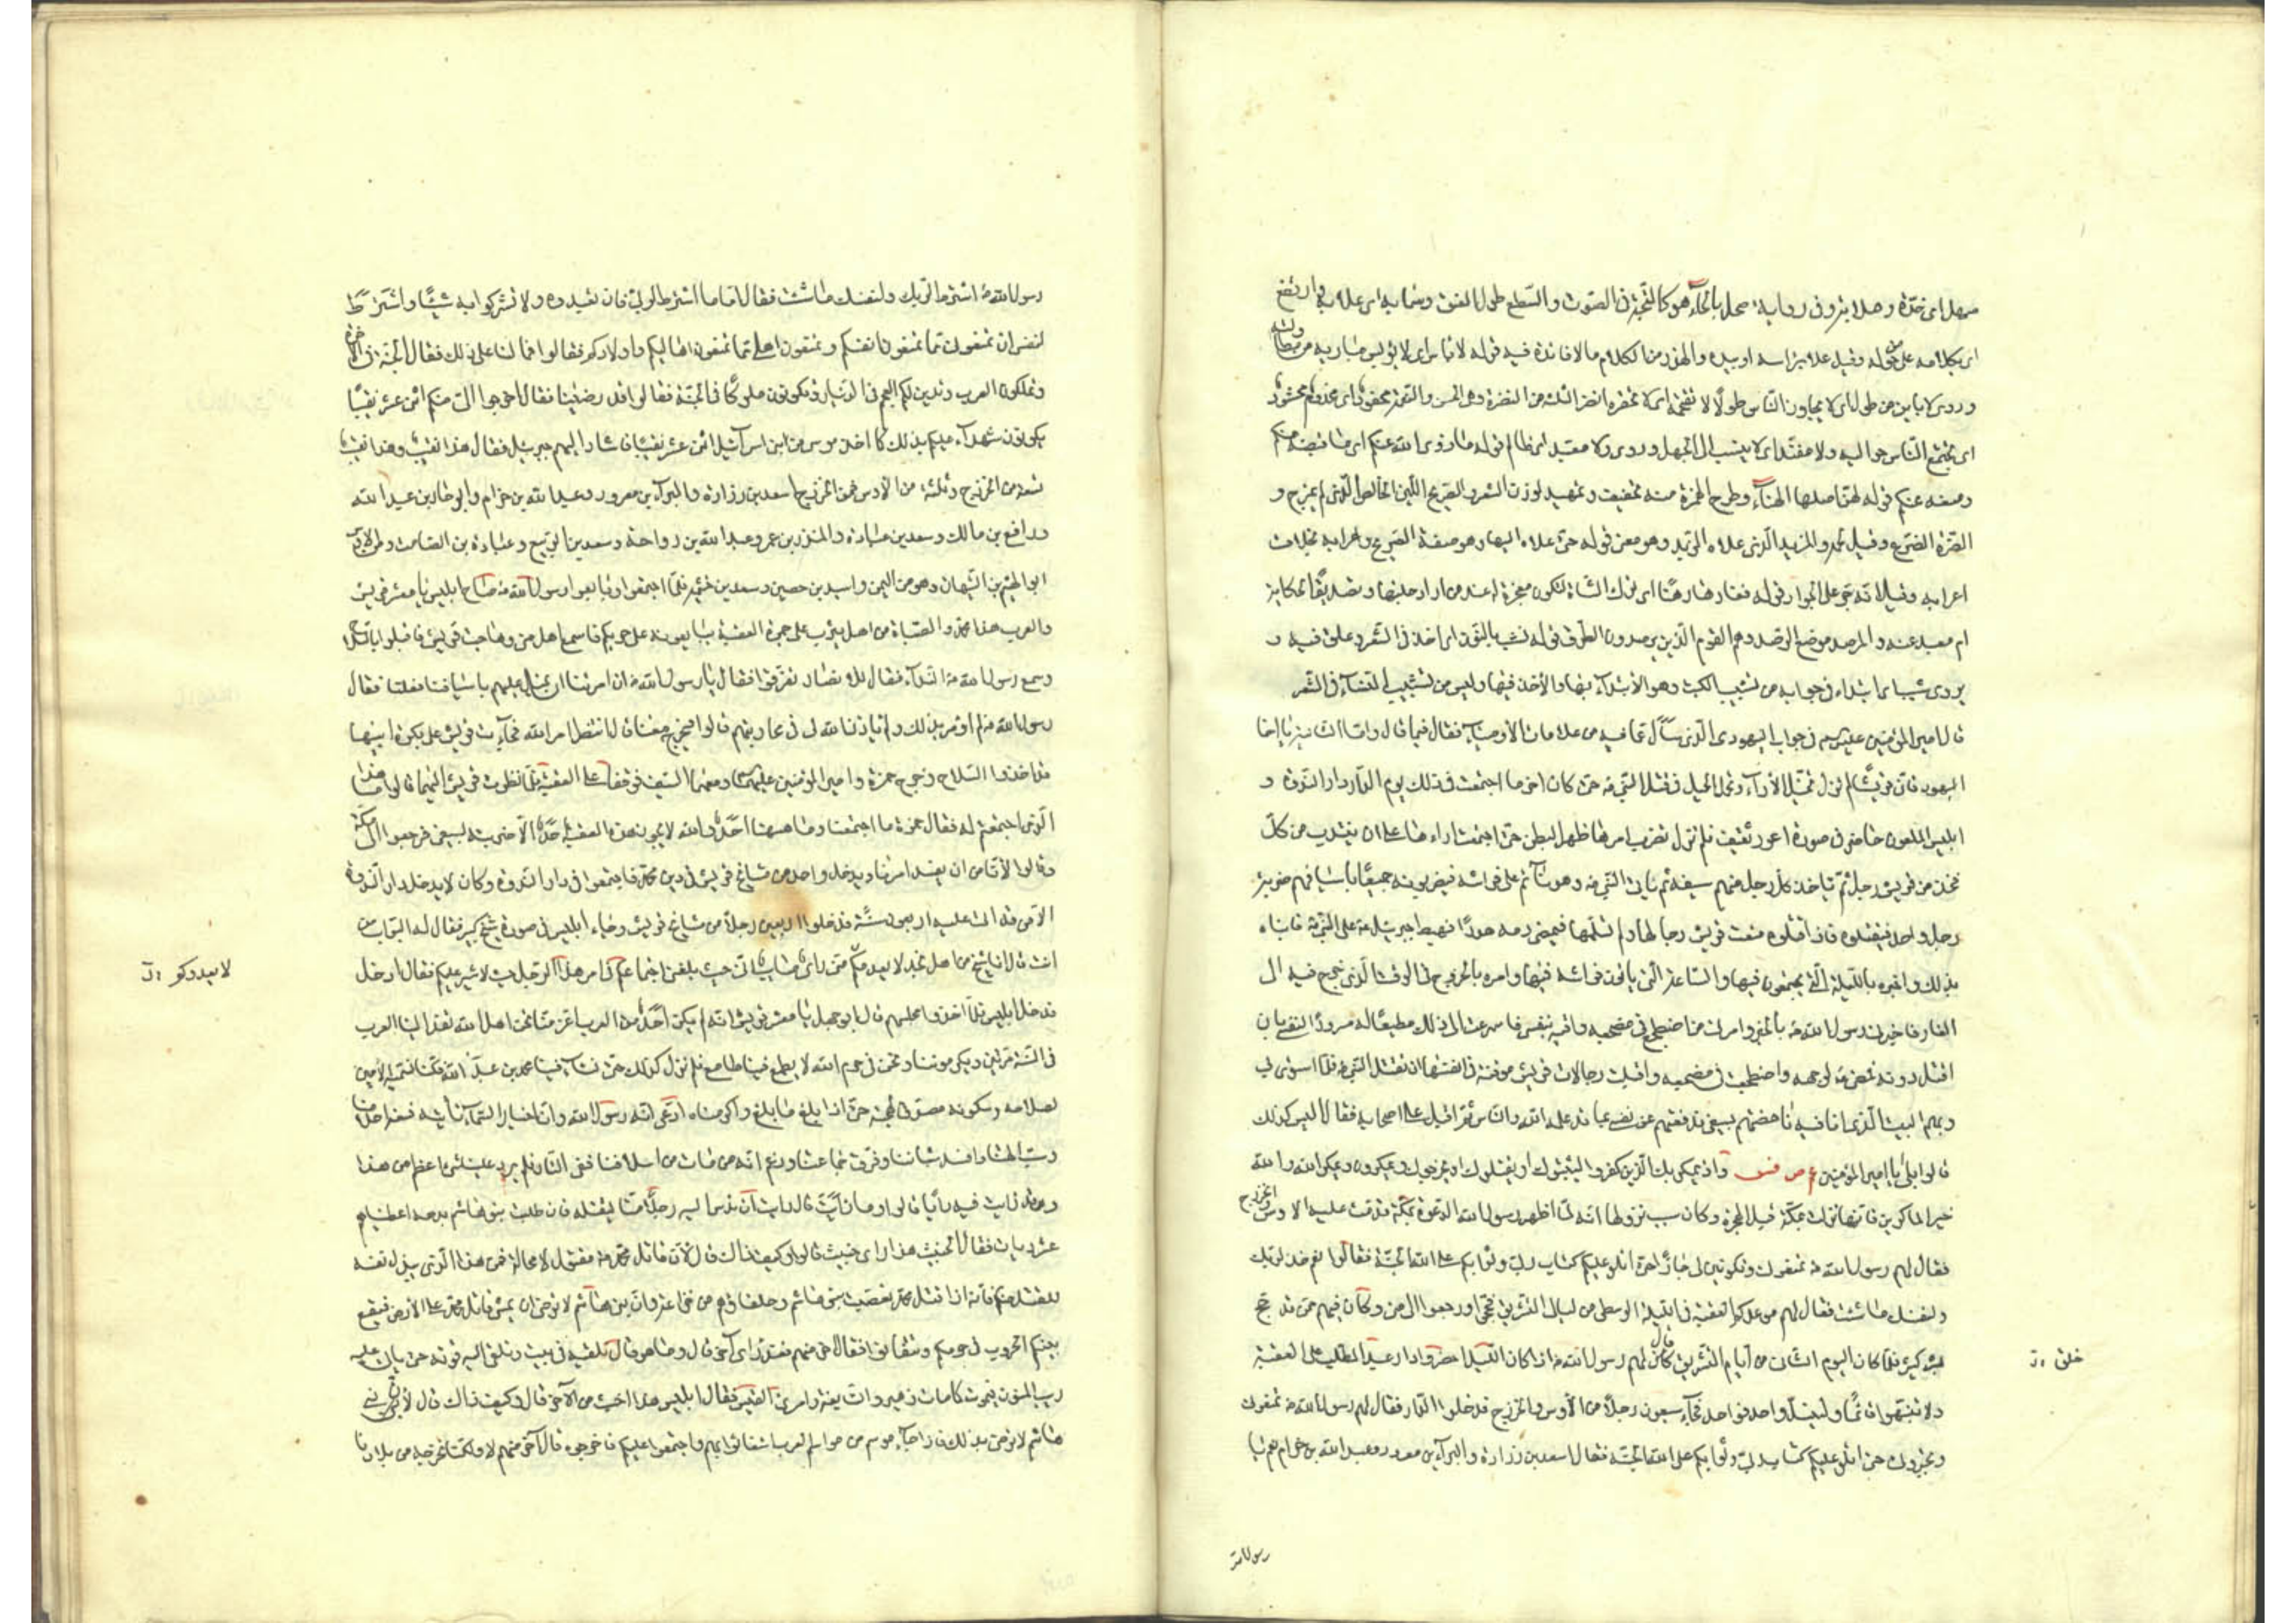 سهل ای خدّه وصلا بثر وفی روایة صحل بالحاء هو كالبحّة فی الصوت والسطع طول العنق وسما به ای علا به وارتفع
ای بكلامه علی من حوله وقیل علا براسه او بیده والهذر من الكلام ما لا فائدة فیه قوله لا باس ای لا یؤیس مباریه من مطاولته
وروی لا باین من طول ای لا یجاوز الناس طولا لا تقتحمه ای لا تحقره انضر الثلثة من النضرة وهی الحسن والنعمة محفود ای مخدوم محشود
ای یجتمع الناس حوالیه ولا مفنّد ای لا ینسب الی الجهل وروی ولا معتد ای ظالم قوله ما زوی الله عنكم ای ما قبضه منكم
ومنعه عنكم قوله لهنّ اصلها الهناء وطرح الهمزة منه تخفیف وتمهید لوزن الشعر الصریح اللبن الخالص الذی لم یمزج و
الضرة الضرع وقیل والمزبد الذی علاه الزبد وهو معنی قوله حتی علاه البهاء وهو صفة الصریح واعرابه بخلاف
اعرابه وقیل انه جرّ علی الجوار قوله فغادرها رهنا ای ترك الشاة لتكون معجزة له عند من اراد حلبها وتصدیقا لحكایة
ام معبد عنه والمرصد موضع الرصد وهم القوم الذین یرصدون الطرق قوله نشب بالنون ای اخذ فی الشعر وعلق فیه و
یروی شبب ای ابتداء فی جوابه من تشبیب الكتب وهو الابتداء بها والاخذ فیها ولیس من تشبیب النساء فی الشعر
قال امیر المؤمنین علیه السلم فی جواب الیهودی الذی سأل عما فیه من علامات الاوصیاء فقال فیما قال واما الثانیة یا اخا
الیهود فان قریشا لم تزل تخیّل الآراء وتعمل الحیل فی قتل النبی ص حتی كان اخر ما اجتمعت فی ذلك یوم الدار دار الندوة و
ابلیس الملعون حاضر فی صورة اعور ثقیف فلم تزل تضرب امرها ظهر البطن حتی اجتمعت اراءها علی ان ینتدب من كل
فخذ من قریش رجل ثم یاخذ كل رجل منهم سیفه ثم یاتی النبی ص وهو نائم علی فراشه فیضربونه جمیعا باسیافهم ضربة
رجل واحد فیقتلوه فاذا قتلوه منعت قریش رجالها ولم تسلمها فیمضی دمه هدرا فهبط جبرئیل ع علی النبی ص فانباه
بذلك واخبره باللیلة التی یجتمعون فیها والساعة التی یاتون فراشه فیها وامره بالخروج فی الوقت الذی خرج فیه الی
الغار فاخبرنی رسول الله ص بالخبر وامرنی ان اضطجع فی مضجعه واقیه بنفسی فاسرعت الی ذلك مطیعا له مسرورا لنفسی بان
اقتل دونه فمضی ص لوجهه واضطجعت فی مضجعه واقبلت رجالات قریش موقنة فی انفسها ان تقتل النبی ص فلما استوی بی
وبهم البیت الذی انا فیه ناهضتهم بسیفی فدفعتهم عن نفسی بما قد علمه الله والناس ثم اقبل علی اصحابه فقال الیس كذلك
قالوا بلی یا امیر المؤمنین ع ص فس واذ یمكر بك الذین كفروا لیثبتوك او یقتلوك او یخرجوك ویمكرون ویمكر الله والله
خیر الماكرین فانها نزلت بمكة قبل الهجرة وكان سبب نزولها انه لما اظهر رسول الله الدعوة بمكة قدمت علیه الاوس والخزرج
فقال لهم رسول الله ص تمنعونی وتكونون لی جارا حتی اتلو علیكم كتاب ربی وثوابكم علی الله الجنة فقالوا نعم خذ لربك
ولنفسك ما شئت فقال لهم موعدكم العقبة فی اللیلة الوسطی من لیالی التشریق فحجوا ورجعوا الی منی وكان فیهم ممن قد حج
بشر كثیر فلما كان الیوم الثانی من ایام التشریق قال لهم رسول الله ص اذا كان اللیل فاحضروا دار عبد المطلب علی العقبة
ولا تنبهوا نائما ولینسل واحد فواحد فجاء سبعون رجلا من الاوس والخزرج فدخلوا الدار فقال لهم رسول الله ص تمنعونی
وتجیرونی حتی اتلو علیكم كتاب ربی وثوابكم علی الله الجنة فقال اسعد بن زرارة والبراء بن معرور وعبد الله بن حرام نعم یا
خلق ، ن
رسول الله
رسول الله ص اشترط لربك ولنفسك ما شئت فقال اما ما اشترط لربی فان تعبدوه ولا تشركوا به شیئا واشترط
لنفسی ان تمنعونی مما تمنعون انفسكم وتمنعون اهلی مما تمنعون اهالیكم واولادكم فقالوا فما لنا علی ذلك فقال الجنة فی الاخرة
وتملكون العرب وتدین لكم العجم فی الدنیا وتكونون ملوكا فی الجنة فقالوا قد رضینا فقال اخرجوا الیّ منكم اثنی عشر نقیبا
یكونون شهداء علیكم بذلك كما اخذ موسی من بنی اسرائیل اثنی عشر نقیبا فاشار الیهم جبرئیل فقال هذا نقیب وهذا نقیب
تسعة من الخزرج وثلثة من الاوس فمن الخزرج اسعد بن زرارة والبراء بن معرور وعبد الله بن حزام وابو جابر بن عبد الله
ورافع بن مالك وسعد بن عبادة والمنذر بن عمرو وعبد الله بن رواحة وسعد بن الربیع وعبادة بن الصامت ومن الاوس
ابو الهیثم بن التیهان وهو من الیمن واسید بن حصین وسعد بن خثیمة فلما اجتمعوا وبایعوا رسول الله ص صاح ابلیس یا معشر قریش
والعرب هذا محمد والصباة من اهل یثرب علی جمرة العقبة یبایعونه علی حربكم فاسمع اهل منی وهاجت قریش فاقبلوا بالسلاح
وسمع رسول الله ص النداء فقال للانصار تفرقوا فقالوا یا رسول الله ص ان امرتنا ان نمیل علیهم باسیافنا فعلنا فقال
رسول الله ص لم اومر بذلك ولم یاذن الله لی فی محاربتهم قالوا فتخرج معنا قال انتظر امر الله فجاءت قریش علی بكرة ابیها
قد اخذوا السلاح وخرج حمزة وامیر المؤمنین علیهما السلام ومعهما السیف فوقفا علی العقبة فلما نظرت قریش الیهما قالوا ما هذا
الذی اجتمعتم له فقال حمزة ما اجتمعنا وما هیهنا احد والله لا یجوز هذه العقبة احد الا ضربته بسیفی فرجعوا الی مكة
وقالوا لا نامن ان یفسد امرنا ویدخل واحد من مشایخ قریش فی دین محمد فاجتمعوا فی دار الندوة وكان لا یدخل دار الندوة
الا من قد اتت علیه اربعون سنة فدخلوا اربعین رجلا من مشایخ قریش وجاء ابلیس فی صورة شیخ كبیر فقال له البواب من
انت قال انا شیخ من اهل نجد لا یعدمكم منی رای صایب انی حیث بلغنی اجتماعكم فی امر هذا الرجل جئت لاشیر علیكم فقال ادخل
فدخل ابلیس فلما اخذوا مجلسهم قال ابو جهل یا معشر قریش انه لم یكن احد من العرب اعز منا نحن اهل الله تغدو الینا العرب
فی السنة مرتین ویكرموننا ونحن فی حرم الله لا یطمع فینا طامع فلم نزل كذلك حتی نشاء فینا محمد بن عبد الله فكنا نسمیه الامین
لصلاحه وسكونه وصدق لهجته حتی اذا بلغ ما بلغ واكرمناه ادعی انه رسول الله وان اخبار السماء تاتیه فسفه احلامنا
وسب الهتنا وافسد شباننا وفرق جماعتنا وزعم انه من مات من اسلافنا ففی النار فلم یرد علینا شیء اعظم من هذا
وقد رایت فیه رایا قالوا وما رایت قال رایت ان ندس الیه رجلا منا لیقتله فان طلبت بنو هاشم بدمه اعطیناهم
عشر دیات فقال الخبیث هذا رای خبیث قالوا وكیف ذاك قال لان قاتل محمد ص مقتول لا محالة فمن هذا الذی یبذل نفسه
للقتل منكم فانه اذا قتل محمد تعصبت بنو هاشم وحلفاؤهم من خزاعة وان بنی هاشم لا ترضی ان یمشی قاتل محمد علی الارض فیقع
بینكم الحروب فی حرمكم وتتفانوا فقال اخر منهم فعندی رای آخر قال وما هو قال نلقیه فی بیت ونلقی الیه قوته حتی یاتی علیه
ریب المنون فیموت كما مات زهیر والنابغة وامرئ القیس فقال ابلیس هذا اخبث من الآخر قال وكیف ذاك قال لان بنی
هاشم لا ترضی بذلك فاذا جاء موسم من مواسم العرب استغاثوا بهم واجتمعوا علیكم فاخرجوه قال آخر منهم لا ولكنا نخرجه من بلادنا
لا یعدوكم ، ن